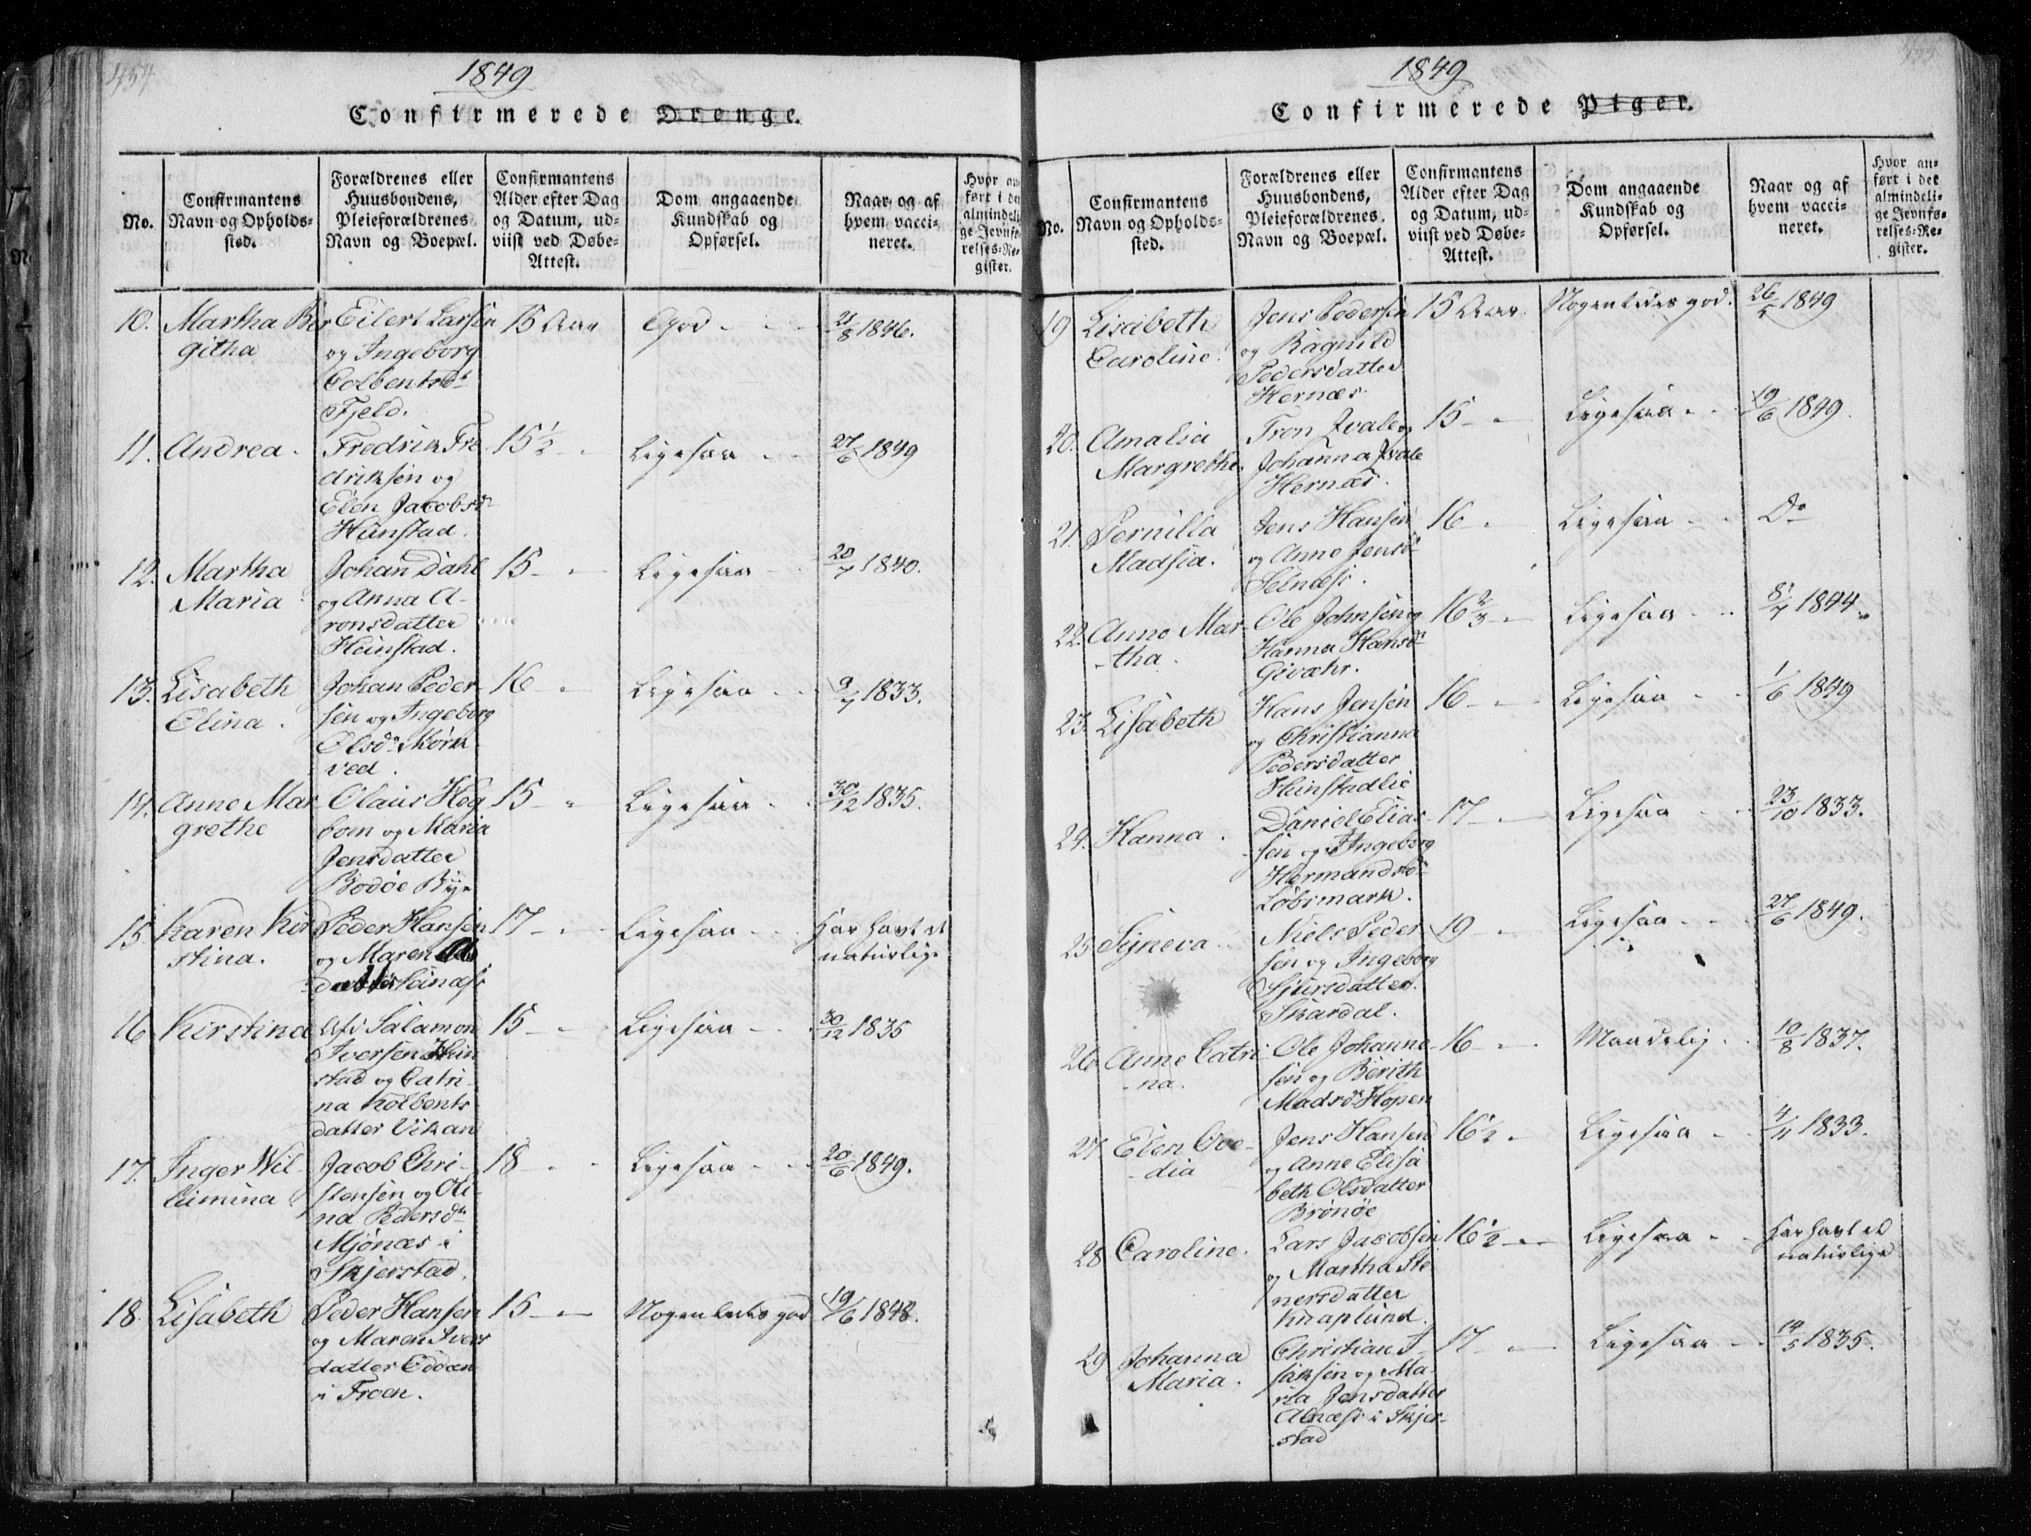 454
1849
Confirmerede Drenge.
No.
Confirmantens
Navn og Opholds-
sted.
Forældrenes eller
Huusbondens,
Pleieforældrenes
Navn og Boepæl.
Confirmantens
Alder efter Dag
og Datum, ud-
viist ved Døbe-
Attest.
Dom angaaende
Kundskab og
Opførsel.
Naar og af
hvem vacci-
neret.
Hvor an-
ført i det
almindeli-
ge Jevnfø-
relses-Re-
gister.
10. Martha Ber
githa
Eilert Larsen
og Ingeborg
Colbentsdr
Fjeld.
15 Aar
God
21/8 1846.
11. Andrea.
Fredrik Fre
driksen og
Elen Jacobsdr
Hunstad.
15½
Ligesaa
27/6 1849
12. Martha
Maria
Johan Dahl
og Anna A-
ronsdatter
Heinstad.
15
Ligesaa
20/7 1840.
13. Lisabeth
Elina.
Johan Peder-
sen og Ingeborg
Olsdr Mørk
ved.
16
Ligesaa
9/7 1833.
14. Anne Mar
grethe
Olaus Høg
bom og Maria
Jensdatter
Bodøe Bye
15
Ligesaa
30/12 1835.
15 Karen Kir
stina.
Peder Hansen
og Maren
datter Seinæs
17
Ligesaa
har havt de
naturlige
16 Kirstina
Afd Salamon
Iversen Hun
stad og Catri-
na Kolbents
datter Vikan
15
Ligesaa
30/12 1835
17. Inger Wil-
liimina.
Jacob Chri-
stensen og Oli-
na Pedersdr
Mjønæs i
Skjerstad.
18
Ligesaa
20/6 1849.
18. Lisabeth
Peder Hansen
og Maren Ivers
datter Edvæn
i Froen.
15
Nogenledes god
19/6 1848.
1849
Confirmerede Piger.
No.
Confirmantens
Navn og Opholds-
sted.
Forældrenes eller
Huusbondens,
Pleieforældrenes
Navn og Boepæl.
Confirmantens
Alder efter Dag
og Datum, ud-
viist ved Døbe-
Attest.
Dom angaaende
Kundskab og
Opførsel.
Naar og af
hvem vacci-
neret.
Hvor an-
ført i det
almindeli-
ge Jevnfø-
relses-Re-
gister.
19 Lisabeth
Caroline.
Jens Pedersen
og Ragnild
Pedersdatter
Hernæs.
15 Aar.
Nogenledes god.
1849
20. Amalia
Margrethe.
Tron Ivale og
Johanna Ivale
Hernæs.
15
Ligesaa
19/6 1849.
21. Pernilla
Madsia.
Jens Hansen
og Anne Jensdr
Selnæs.
16
Ligesaa
Do
22. Anne Mar-
-tha.
Ole Johnsen og
Hanna Hansdr
Givæhr.
16⅔
Ligesaa
8/7 1844.
23. Lisabeth
Hans Jensen
og Christianna
Pedersdatter
Hunstadlie
16
Ligesaa
1/6 1849
24. Hanna.
Daniel Elias
sen og Ingeborg
Hermandsdr
Løbsmark.
17
Ligesaa
23/10 1833.
25 Syneva.
Niels Peder
sen og Ingeborg
Sjursdatter.
Skardal.
19
Ligesaa
27/6 1849.
26. Anne Catri-
-na.
Ole Johanne-
sen og Berith
Madsdr Hopen
16
Maadelig
10/8 1837.
27 Elen Ove-
-dia
Jens Hansen
og Anne Elisa
beth Olsdatter
Brønøe
16½
Ligesaa
4/11 1833.
28 Caroline.
Lars Jacobsen
og Martha Ste
nersdatter
Knaplund.
16½
Ligesaa
har havt de
naturlige
29 Johanna
Maria.
Christian I-
saksen og Ma-
ria Jensdatter
Alnæs i Skjer-
stad
17
Ligesaa
14/5 1835.